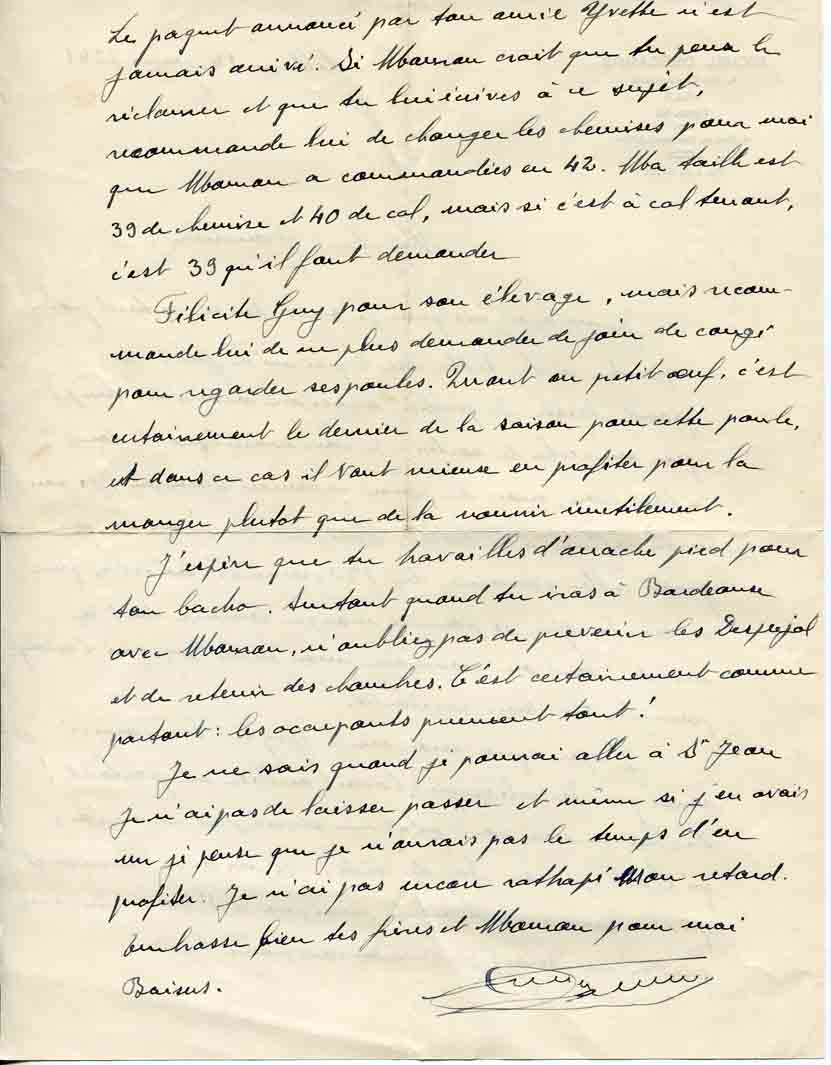 Le paquet annoncé par ton amie Yvette n'est
jamais arrivé. Si Maman croit que tu peux le
réclamer et que tu lui écrives à ce sujet,
recommande lui de changer les chemises pour moi
que Maman a commandées en 42. Ma taille est
39 de chemise et 40 de col, mais si c'est à col tenant,
c'est 39 qu'il faut demander
Félicite Guy pour son élevage, mais recom-
mande lui de ne plus demander de jour de congé
pour regarder ses poules. Quant au petit œuf, c'est
certainement le dernier de la saison pour cette poule,
et dans ce cas il vaut mieux en profiter pour la
manger plutot que de la nourrir inutilement.
J'espère que tu travailles d'arrache pied pour
ton bacho. Surtout quand tu iras à Bordeaux
avec Maman, n'oubliez pas de prevenir les Despujol
et de retenir des chambres. C'est certainement comme
partout : les occupants prennent tout !
Je ne sais quand je pourrai aller à St Jean
Je n'ai pas de laisser passer et même si j'en avais
un je pense que je n'aurais pas le temps d'en
profiter. Je n'ai pas encore rattrapé mon retard.
Embrasse bien tes frères et Maman pour moi
Baisers.